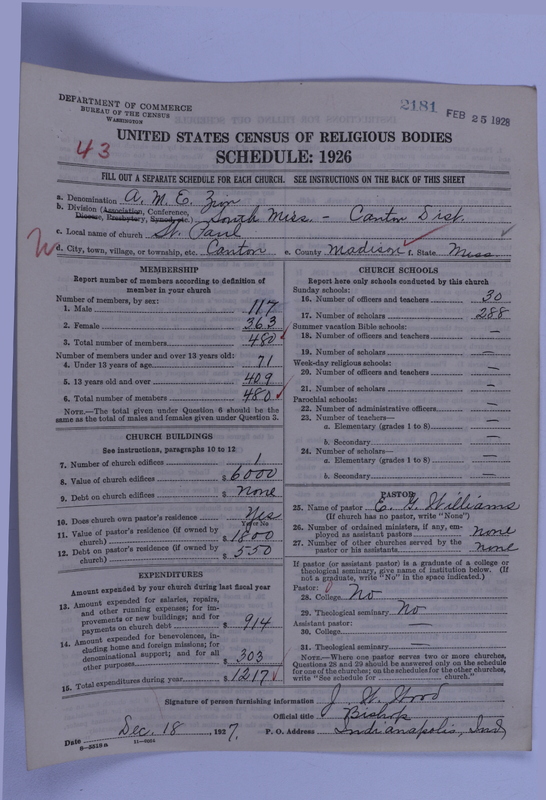 DEPARTMENT OF COMMERCE
BUREAU OF THE CENSUS
WASHINGTON
2181 FEB 25 1928
43
UNITED STATES CENSUS OF RELIGIOUS BODIES
SCHEDULE: 1926
FILL OUT A SEPARATE SCHEDULE FOR EACH CHURCH. SEE INSTRUCTIONS ON THE BACK OF THIS SHEET
a. Denomination A. M. E. Zion
b. Division (Association, Conference, Diocese, Presbytery, Synod, etc.) South Miss. - Canton Dist.
c. Local name of church St. Paul
d. City, town, village, or township, etc. Canton e. County Madison f. State Miss.
MEMBERSHIP
Report number of members according to definition of
member in your church
Number of members, by sex:
1. Male 117
2. Female 363
3. Total number of members 480
Number of members under and over 13 years old:
4. Under 13 years of age 71
5. 13 years old and over 409
6. Total number of members 480
NOTE.—The total given under Question 6 should be the
same as the total of males and females given under Question 3.
CHURCH BUILDINGS
See instructions, paragraphs 10 to 12
7. Number of church edifices 1
8. Value of church edifices $ 6000
9. Debt on church edifices $ none
10. Does church own pastor's residence Yes
Yes or No
11. Value of pastor's residence (if owned by
church) $ 1800
12. Debt on pastor's residence (if owned by
church) $ 550
EXPENDITURES
Amount expended by your church during last fiscal year
13. Amount expended for salaries, repairs,
and other running expenses; for im-
provements or new buildings; and for
payments on church debt $ 914
14. Amount expended for benevolences, in-
cluding home and foreign missions; for
denominational support; and for all
other purposes $ 303
15. Total expenditures during year $ 1217
CHURCH SCHOOLS
Report here only schools conducted by this church
Sunday schools:
16. Number of officers and teachers 30
17. Number of scholars 288
Summer vacation Bible schools:
18. Number of officers and teachers —
19. Number of scholars —
Week-day religious schools:
20. Number of officers and teachers —
21. Number of scholars —
Parochial schools:
22. Number of administrative officers —
23. Number of teachers—
a. Elementary (grades 1 to 8) —
b. Secondary —
24. Number of scholars—
a. Elementary (grades 1 to 8) —
b. Secondary —
PASTOR
25. Name of pastor E. G. Williams
(If church has no pastor, write "None")
26. Number of ordained ministers, if any, em-
ployed as assistant pastors none
27. Number of other churches served by the
pastor or his assistants none
If pastor (or assistant pastor) is a graduate of a college or
theological seminary, give name of institution below. (If
not a graduate, write "No" in the space indicated.)
Pastor:
28. College No
29. Theological seminary No
Assistant pastor:
30. College —
31. Theological seminary —
NOTE.—Where one pastor serves two or more churches,
Questions 28 and 29 should be answered only on the schedule
for one of the churches; on the schedules for the other churches,
write "See schedule for church."
Signature of person furnishing information J. W. Wood
Official title Bishop
Date Dec. 18, 1927. P. O. Address Indianapolis, Ind
8-5319a 11-9054